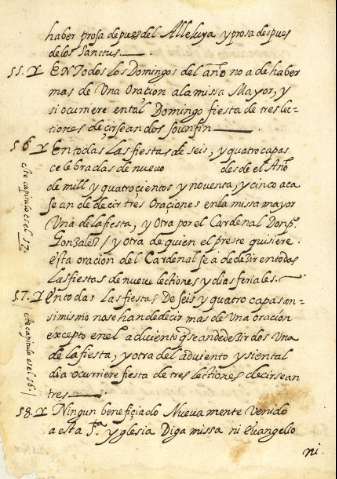 haber prosa depues del Alleluya y prosa despues
de los Sanctus.
55. Y EN Todos los Domingos del año no a de haber
mas de Una Oracion a la missa Mayor, y
si ocurriere en tal Domingo fiesta de tres lec-
tiones
56. Y En todas las fiestas de seis, y quatro capas
celebradas de nuevo desde el Año
de mill y quatrocientos y noventa, y cinco aca
se an de decir tres Oraciones en la missa mayor
Una de la fiesta, y Otra por el Cardenal Don p.
Gonzales / y otra de quien el preste quisiere.
esta oracion del Cardenal se a de decir en todas
las fiestas de nueve lectiones y dias feriales.
57. Y En todas las fiestas De seis y quatro capas an-
simismo no se han de decir mas de Una oracion
excepto en el adviento q̃ se an de decir dos Una
de la fiesta, y otra del adviento y si en tal
dia ocurriere fiesta de tres lectiones decirse an
tres
58. Y Ningun beneficiado Nuevamente Venido
a esta S.ta yglesia Diga missa ni evangelio
ni
este capitulo es el 17.
este capitulo es el 16.